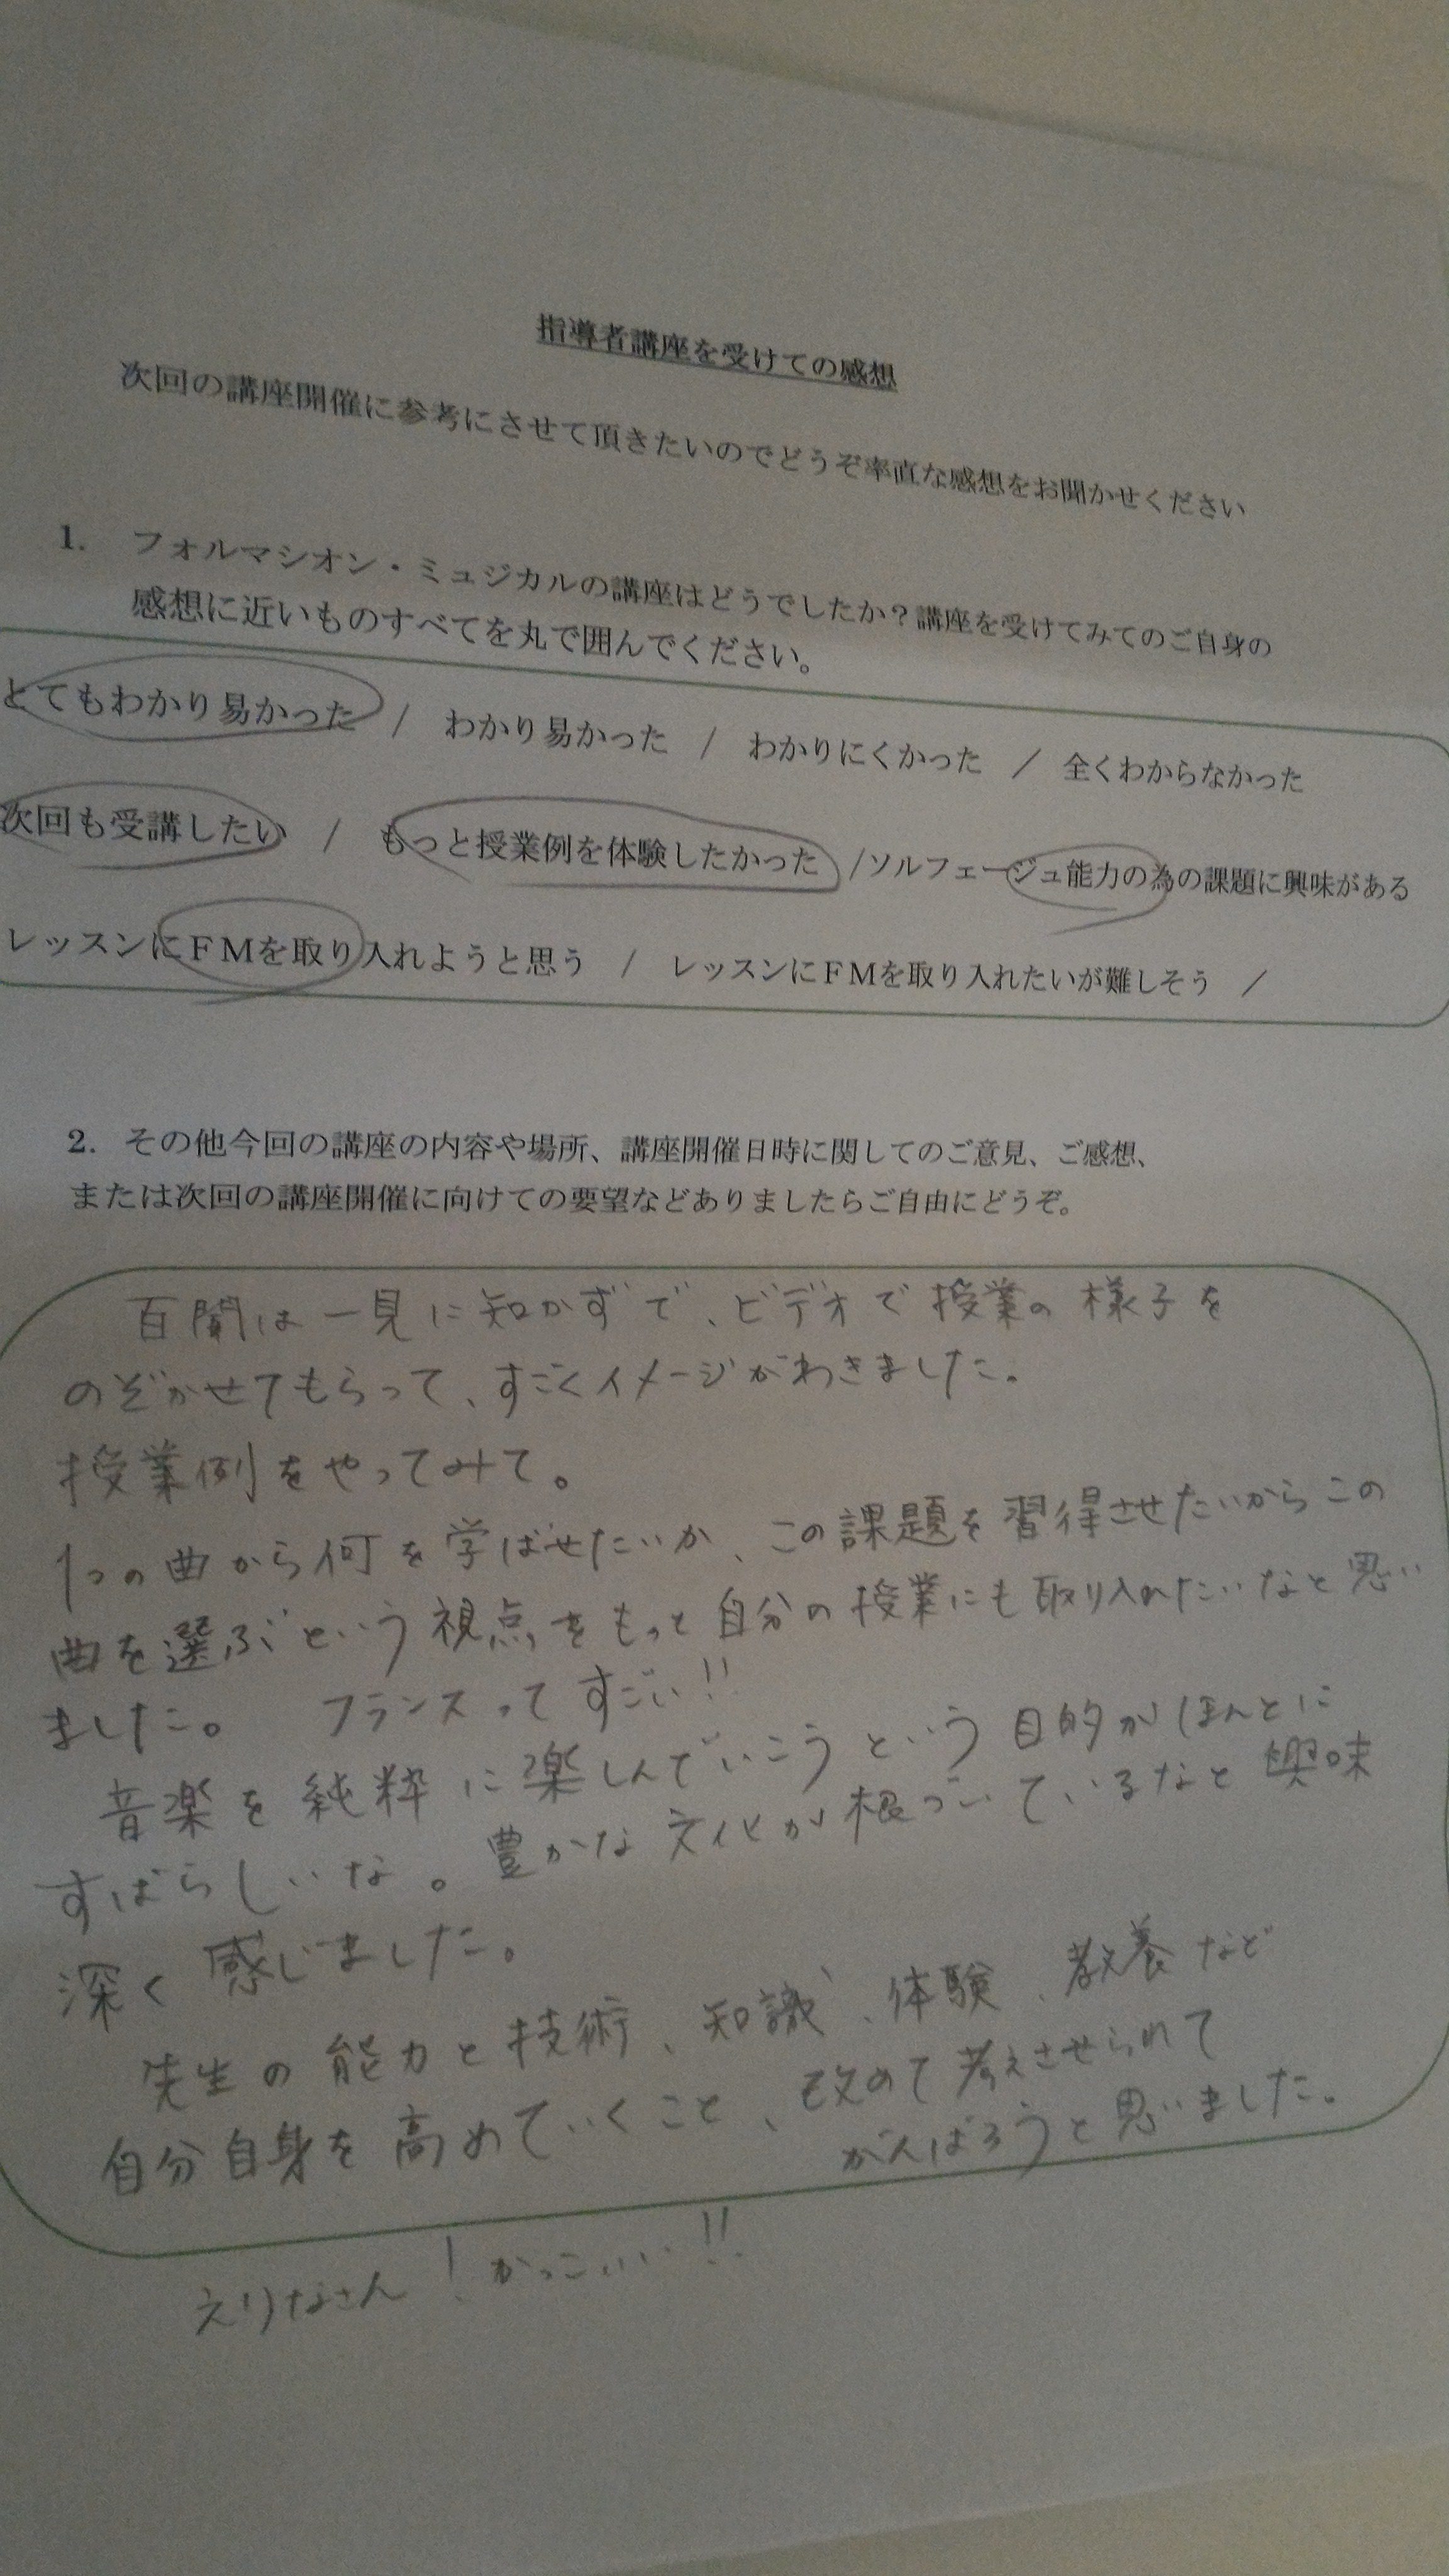 指導者講座を受けての感想
次回の講座開催に参考にさせて頂きたいのでどうぞ率直な感想をお聞かせください
1. フォルマシオン・ミュジカルの講座はどうでしたか？講座を受けてみてのご自身の
感想に近いものすべてを丸で囲んでください。
とてもわかり易かった / わかり易かった / わかりにくかった / 全くわからなかった
次回も受講したい / もっと授業例を体験したかった /ソルフェージュ能力の為の課題に興味がある
レッスンにＦＭを取り入れようと思う / レッスンにＦＭを取り入れたいが難しそう /
2. その他今回の講座の内容や場所、講座開催日時に関してのご意見、ご感想、
または次回の講座開催に向けての要望などありましたらご自由にどうぞ。
百聞は一見に知かずで、ビデオで授業の様子を
のぞかせてもらって、すごくイメージがわきました。
授業例をやってみて。
1つの曲から何を学ばせたいか、この課題を習得させたいからこの
曲を選ぶという視点をもっと自分の授業にも取り入れたいなと思い
ました。 フランスってすごい!!
音楽を純粋に楽しんでいこうという目的がほんとに
すばらしいな。豊かな文化が根づいているなと興味
深く感じました。
先生の能力と技術、知識、体験、教養など
自分自身を高めていくこと、改めて考えさせられて
がんばろうと思いました。
えりなさん！かっこいい!!